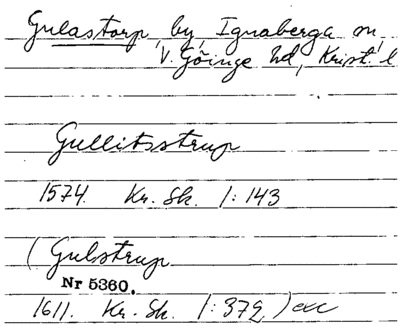 Gulastorp, by, Ignaberga sn,
V. Göinge hd, Krist. l
Gullitsstrup
1574. Kr. Sk. 1: 143
(Gulstrup
Nr 5360.
1611. Kr. Sk. 1: 372) exc